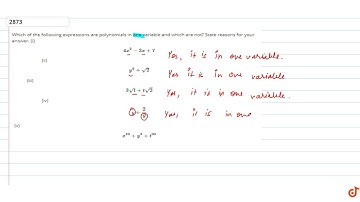 2873
Which of the following expressions are polynomials in one variable and which are not? State reasons for your answer. (i)
4x² − 3x + 7 Yes, it is in one variable.
(ii)
y² + √2 Yes it is in one variable
(iii)
3√t + t√2 Yes, it is in one variable.
(iv)
y + 2/y Yes, it is in one
(v)
x¹⁰ + y³ + t⁵⁰
doubtnut